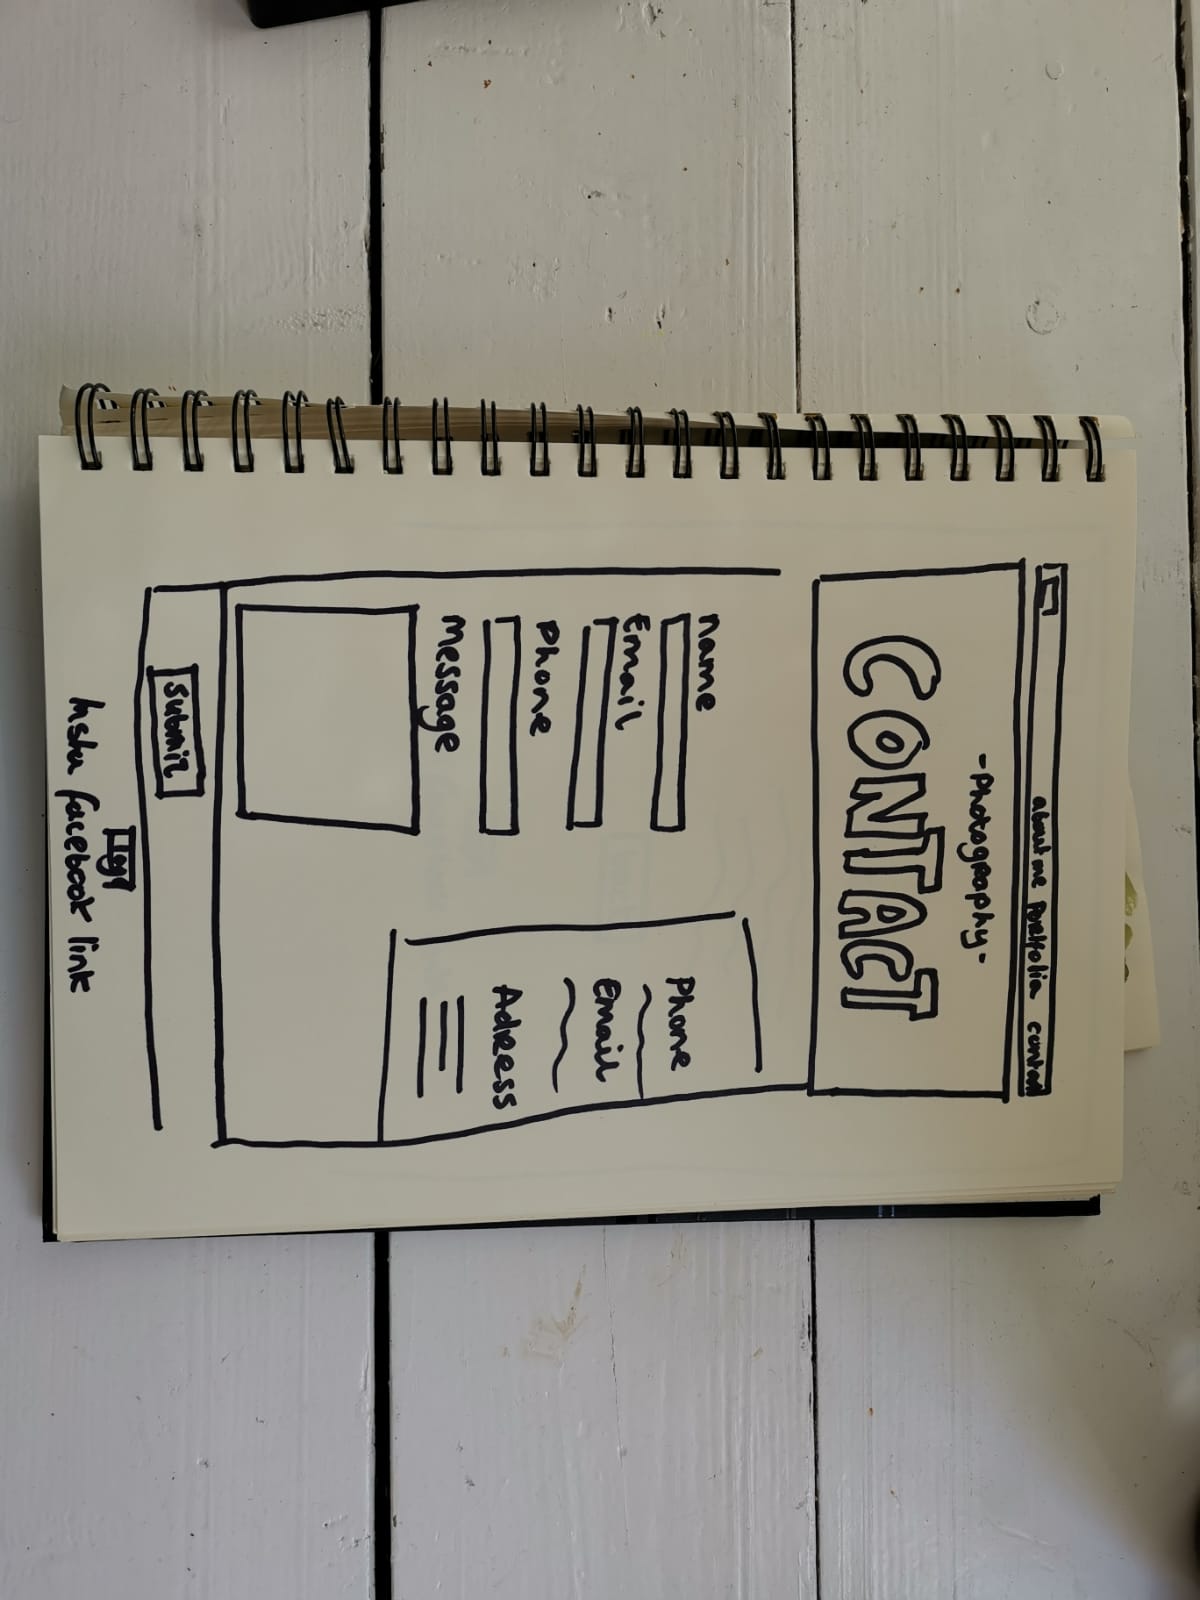 about me Portfolio contact
-Photography-
CONTACT
name
Email
Phone
Message
Phone
Email
Adress
Submit
logo
Insta facebook link